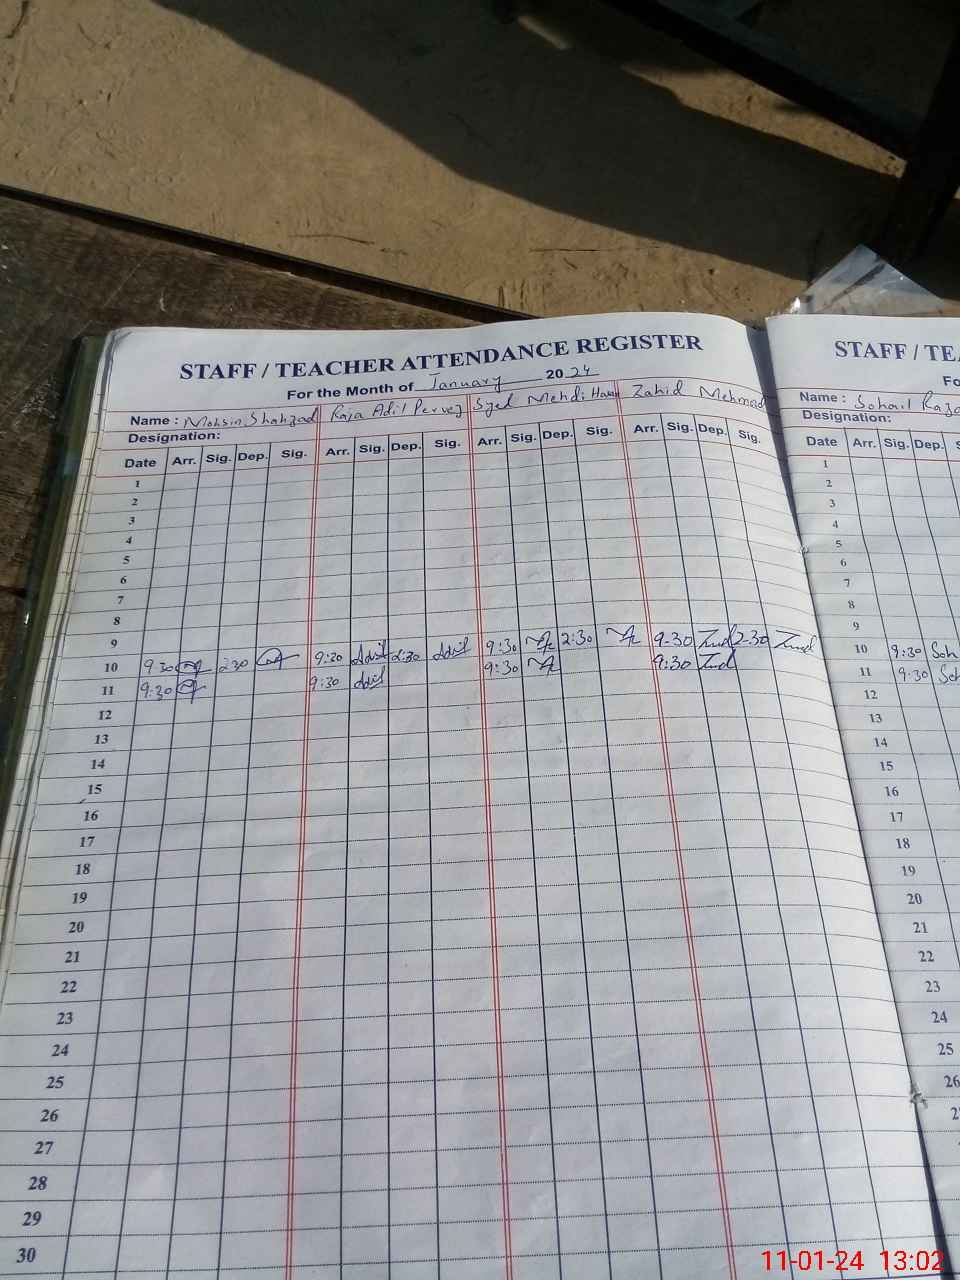 STAFF / TEACHER ATTENDANCE REGISTER
For the Month of January 2024
Name : Mohsin Shahzad Raja Adil Pervez Syed Mehdi Hassan Zahid Mehmood
Designation:
Date Arr. Sig. Dep. Sig. Arr. Sig. Dep. Sig. Arr. Sig. Dep. Sig. Arr. Sig. Dep. Sig.
1
2
3
4
5
6
7
8
9
10 9:30 2:30 9:30 Adil 2:30 Adil 9:30 2:30 9:30 2:30
11 9:30 9:30 Adil 9:30 9:30
12
13
14
15
16
17
18
19
20
21
22
23
24
25
26
27
28
29
30
STAFF / TE
Fo
Name : Sohail Raza
Designation:
Date Arr. Sig. Dep. S
1
2
3
4
5
6
7
8
9
10 9:30 Soh
11 9:30 Soh
12
13
14
15
16
17
18
19
20
21
22
23
24
25
26
2
11-01-24 13:02